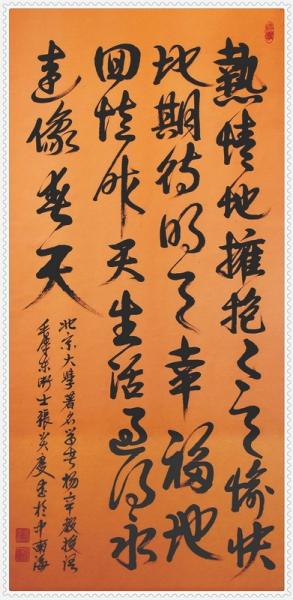 熱情地擁抱今天愉快
地期待明天幸福地
回憶昨天生活過得永
遠像春天
北京大學著名學者楊辛教授語
毛澤東衛士張慶書於中南海